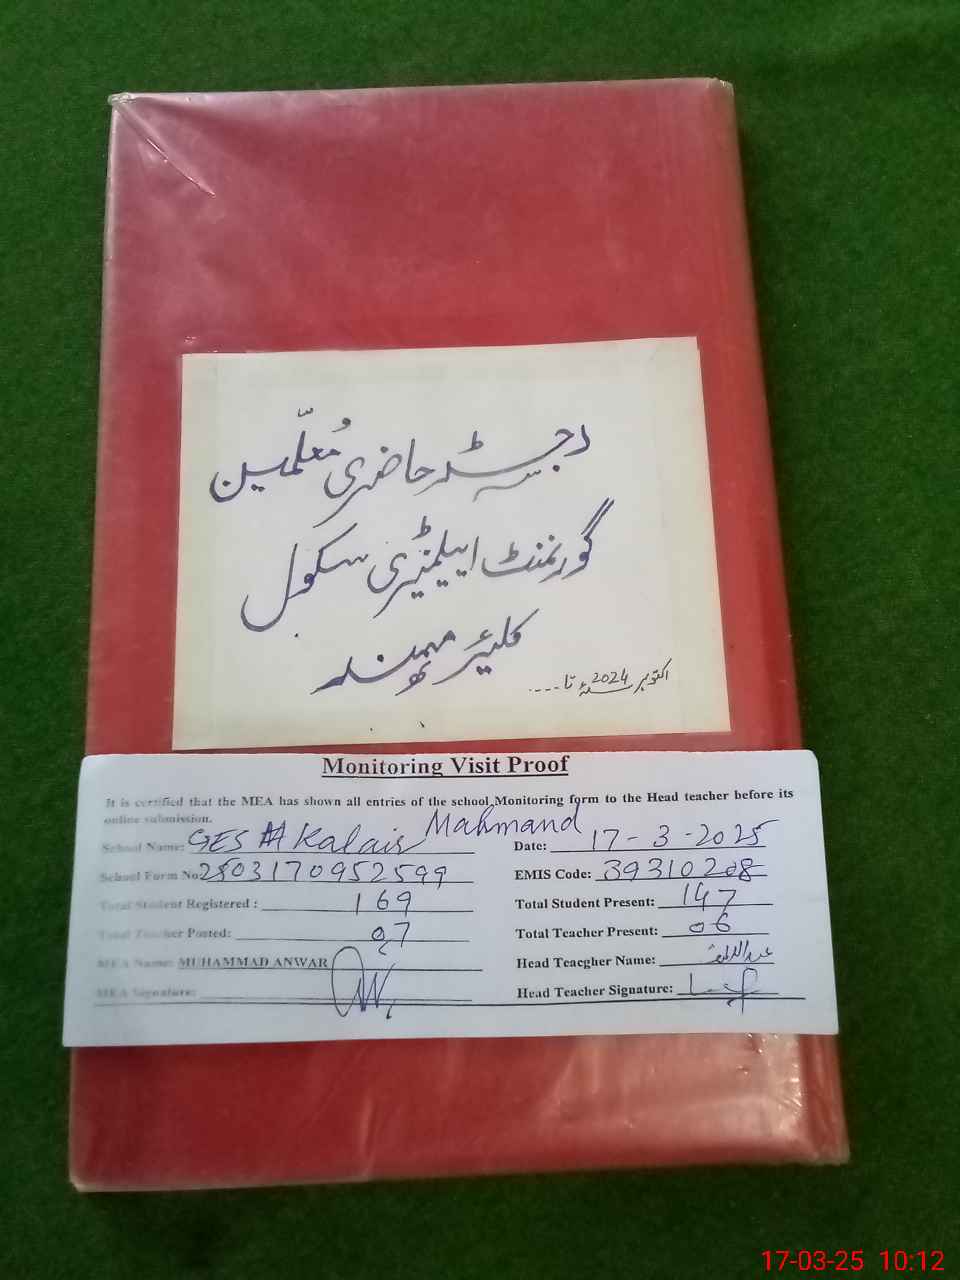 رجسٹر حاضری مُعلّمین
گورنمنٹ ایلیمنٹری سکول
کلیئر مہمند
اکتوبر 2024ء تا ....
Monitoring Visit Proof
It is certified that the MEA has shown all entries of the school Monitoring form to the Head teacher before its
online submission.
School Name: GES Kalair Mahmand Date: 17-3-2025
School Form No 2803170952599 EMIS Code: 39310208
Total Student Registered : 169 Total Student Present: 147
Total Teacher Posted: 07 Total Teacher Present: 06
MEA Name: MUHAMMAD ANWAR Head Teacgher Name:
MEA Signature: Head Teacher Signature:
17-03-25 10:12